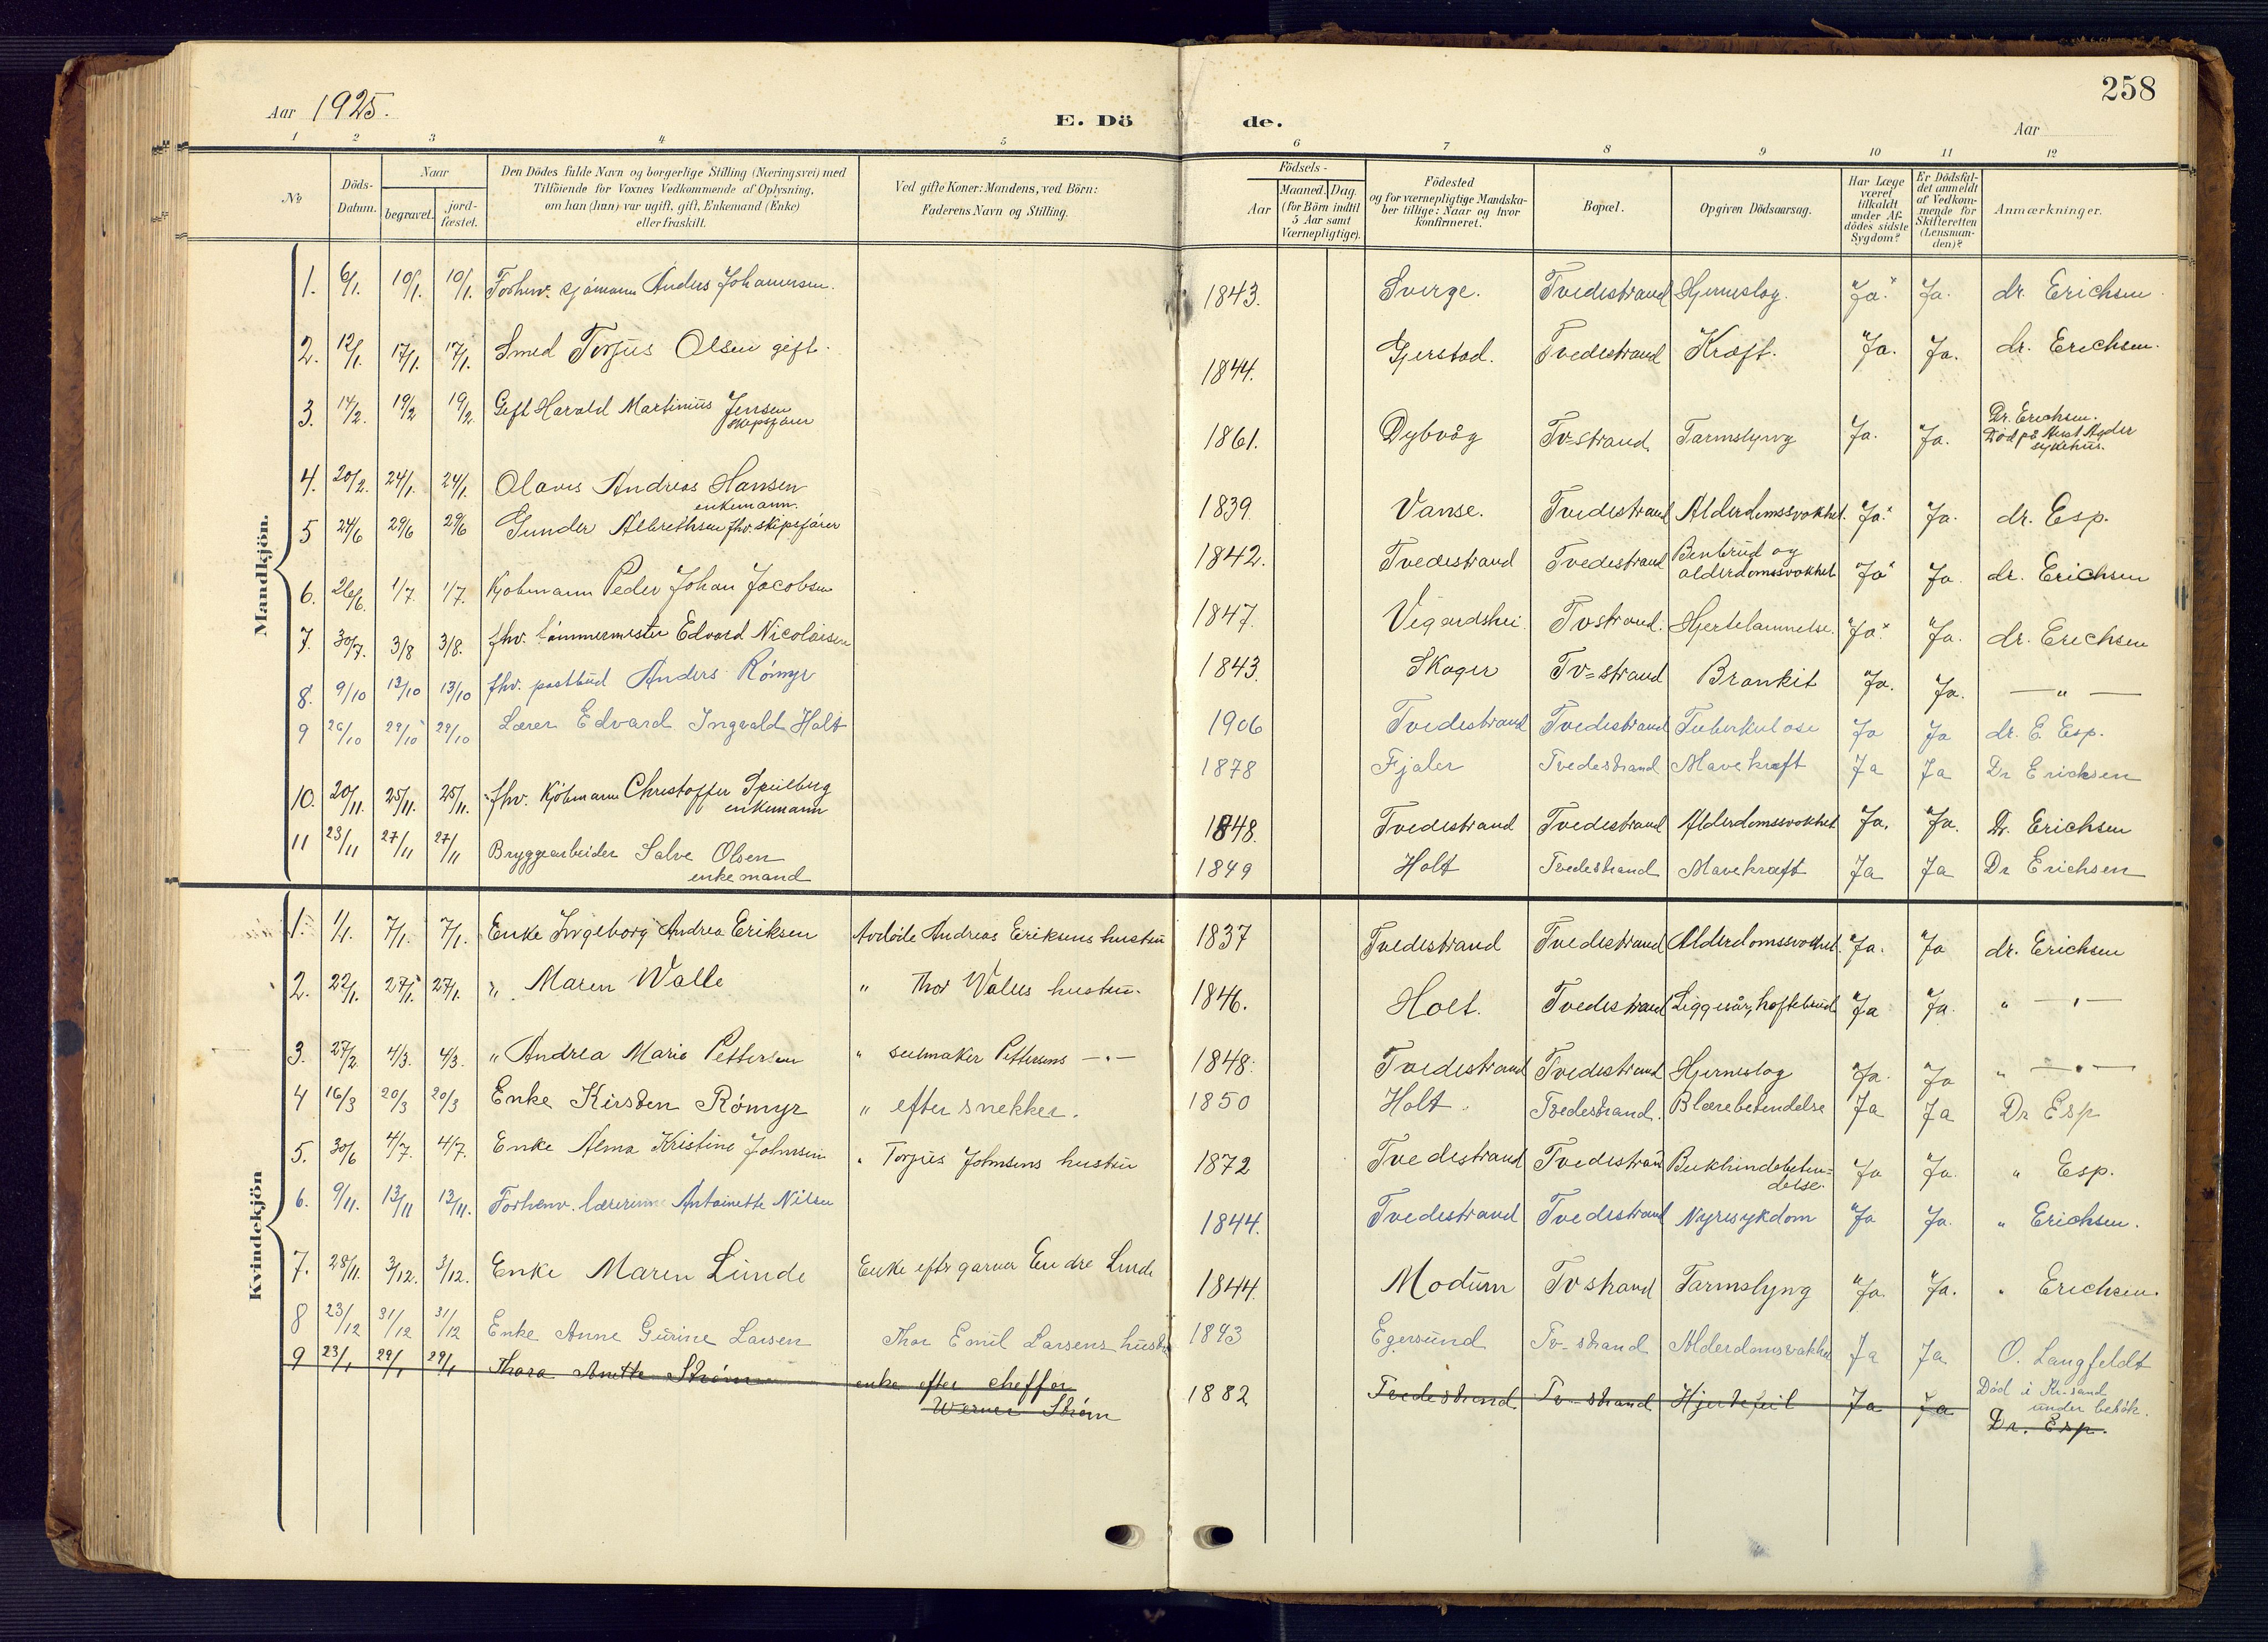 258
Aar 1925.
E. Dö de.
Aar
1 2 3 4 5 6 7 8 9 10 11 12
No
Döds-Datum.
Naar
begravet.
jord-fæstet.
Den Dödes fulde Navn og borgerlige Stilling (Næringsvei) med
Tilföiende for Voxnes Vedkommende af Oplysning,
om han (hun) var ugift, gift, Enkemand (Enke)
eller fraskilt.
Ved gifte Koner: Mandens, ved Börn:
Faderens Navn og Stilling.
Födsels-
Aar
Maaned. Dag.
(for Börn indtil
5 Aar samt
Værnepligtige).
Födested
og for værnepligtige Mandska-
ber tillige: Naar og hvor
konfirmeret.
Bopæl.
Opgiven Dödsaarsag.
Har Læge
været
tilkaldt
under Af-
dödes sidste
Sygdom?
Er Dödsfal-
det anmeldt
af Vedkom-
mende for
Skifteretten
(Lensman-
den)?
Anmærkninger.
Mandkjön.
1. 6/1. 10/1. 10/1. Forhenv. sjömann Anders Johannesen. 1843. Sverge. Tvedestrand Hjerneslag. "Ja." "Ja. dr. Erichsen.
2. 12/1. 17/1. 17/1. Smed Torjus Olsen gift. 1844. Gjerstad. Tvedestrand Kræft. "Ja. "Ja. dr. Erichsen.
3. 14/2. 19/2 19/2. Gift Harald Martinius Jensen
skipsfører 1861. Dybvåg Tv-strand. Tarmslyng "Ja. "Ja. Dr. Erichsen.
Død på Aust Agder
sykehus.
4. 20/2. 24/1. 24/1. Olaves Andreas Hansen
enkemann. 1839. Vanse. Tvedestrand Alderdomssvakhet. "Ja." "Ja. dr. Esp.
5 24/6 29/6 29/6 Gunder Albrethsen fhv. skipsfører 1842. Tvedestrand Tvedestrand Benbrud og
alderdomssvakhet "Ja" "Ja. dr. Erichsen
6. 26/6. 1/7. 1/7. Kjøbmann Peder Johan Jacobsen 1847. Vegardshei. Tvstrand. Hjertelammelse. "Ja." "Ja. dr. Erichsen
7. 30/7. 3/8 3/8. fhv. tømmermester Edvard Nicolaisen 1843. Skager Tv=strand Bronkit "Ja. "Ja. — " —
8. 9/10 13/10 13/10 fhv. postbud Anders Rómyr 1906 Tvedestrand Tvedestrand Tuberkulose Ja Ja dr. E. Esp.
9 26/10 29/10 29/10 Lærer Edvard Ingvald Holt 1878 Fjaler Tvedestrand Mavekræft Ja Ja Dr Erichsen
10. 20/11. 25/11. 25/11. fhv. Kjöbmann Christoffer Spilberg
enkemann 1848. Tvedestrand Tvedestrand Alderdomssvakhet "Ja. "Ja. Dr. Erichsen
11 23/11 27/11 27/11 Bryggearbeider Salve Olsen
enkemand 1849 Holt Tvedestrand Mavekræft Ja Ja Dr Erichsen
Kvindekjön
1. 1/1. 7/1. 7/1. Enke Ingeborg Andrea Eriksen Avdøde Andreas Eriksens hustru 1837 Tvedestrand Tvedestrand Alderdomssvakhet. "Ja. "Ja dr. Erichsen
2. 22/1. 27/1. 27/1. " Maren Walle " Thor Valles hustru. 1846. Holt. Tvedestrand Liggesår, hoftebrud "Ja "Ja. " — " —
3. 27/2. 4/3. 4/3. " Andrea Marie Pettersen " seilmaker Pettersens — " — 1848. Tvedestrand Tvedestrand Hjerneslag "Ja. "Ja " — " —
4 16/3 20/3 20/3 Enke Kirsten Rómyr " efter snekker. 1850 Holt. Tvedestrand. Blærebetendelse Ja Ja Dr Esp
5. 30/6 4/7. 4/7. Enke Alma Kristine Johnsen " Torjus Johnsens hustru 1872 Tvedestrand Tvedestrand Bukhindebeten=
delse. "Ja "Ja. " Esp.
6. 9/11. 13/11 13/11. Forhenv. lærerinne Antoinette Nilsen 1844. Tvedestrand Tvedestrand Nyresykdom "Ja "Ja. " Erichsen.
7. 28/11. 3/12. 3/12. Enke Maren Lunde Enke eftr garver Endre Lunde 1844. Modum Tvstrand Tarmslyng "Ja. "Ja. " Erichsen.
8 23/12 31/12 31/12 Enke Anne Gurine Larsen Thor Emil Larsens hustru 1843 Egersund Tv-strand Alderdomsvakhet Ja Ja O. Langfeldt
9 23/1 29/1 29/1 Thora Anette Strøm enke efter cheffør
Werner Strøm 1882 Tvedestrand Tv-strand Hjertefeil Ja Ja Død i Kr.sand
under besøk.
Dr. Esp.